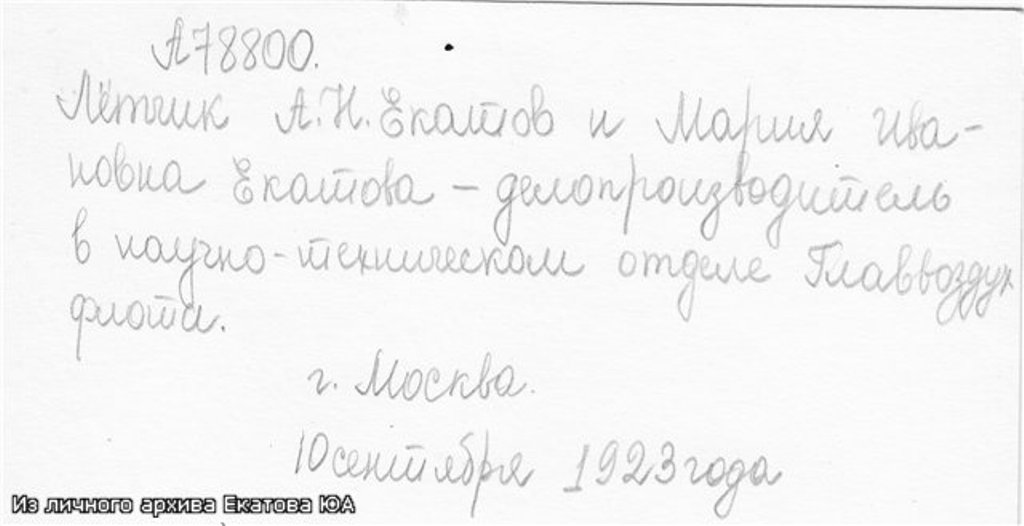 А78800.
Лётчик А.Н. Екатов и Мария Ива-
новна Екатова - делопроизводитель
в научно-техническом отделе Главвоздух
флота.
г. Москва.
10 сентября 1923 года
Из личного архива Екатова ЮА